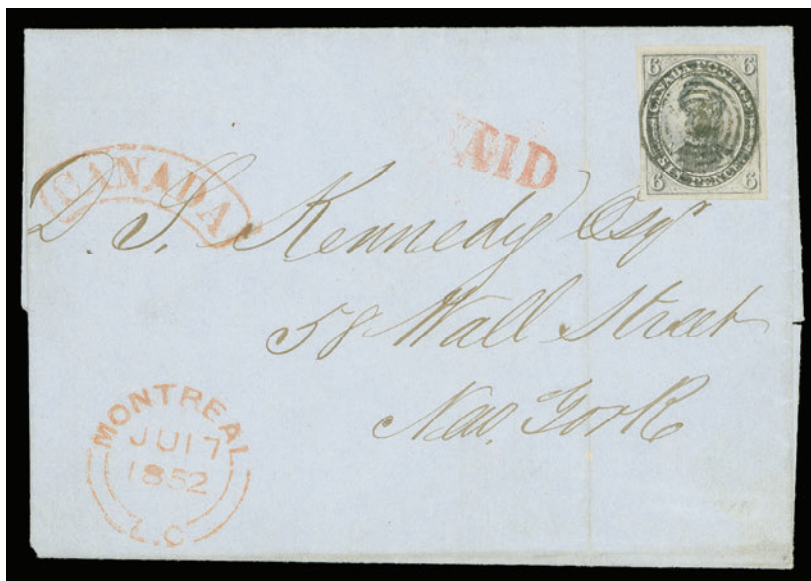 6 CANADA POSTAGE 6
6 SIX PENCE 6
PAID
CANADA
D. S. Kennedy Esqr
58 Wall Street
New York
MONTREAL
JU 17
1852
L.C